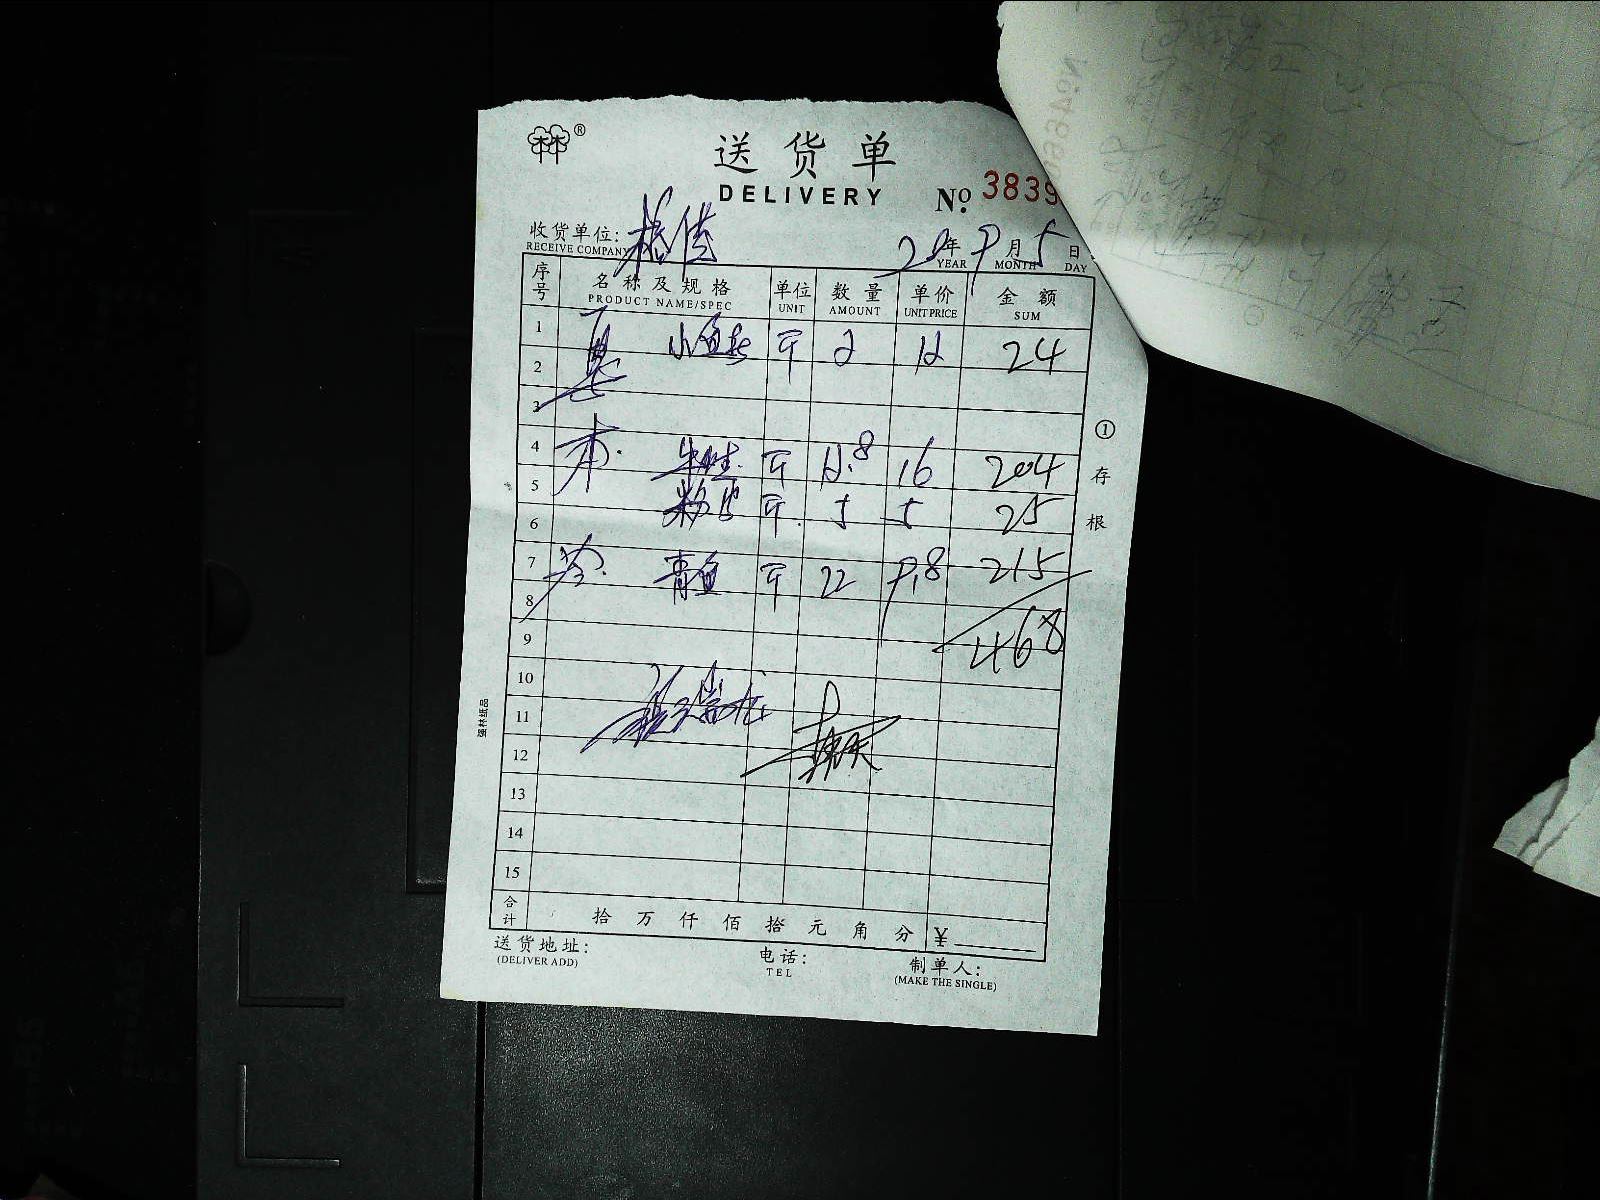 林林®
送货单
DELIVERY
№ 3839
收货单位:
RECEIVE COMPANY
20年9月5日
YEAR MONTH DAY
序号 名称及规格 单位 数量 单价 金额
PRODUCT NAME/SPEC UNIT AMOUNT UNIT PRICE SUM
1 小鱼 斤 2 12 24
2
3
4 牛蛙 斤 12.8 16 204
5 斤 5 5 25
6
7 青鱼 斤 22 9.8 215
8
9 468
10
11
12
13
14
15
合计 拾 万 仟 佰 拾 元 角 分 ¥
送货地址:
(DELIVER ADD)
电话:
TEL
制单人:
(MAKE THE SINGLE)
①存根
强林纸品